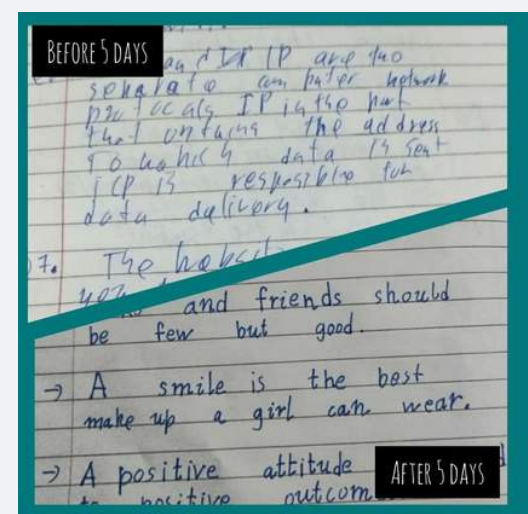 BEFORE 5 DAYS
and IP are two
separate computer network
protocals IP is the part
that ontains the address
to which data is sent
TCP is resposible for
data delivery.
7. The
and friends should
be few but good.
→ A smile is the best
make up a girl can wear.
→ A positive attitude
positive
AFTER 5 DAYS